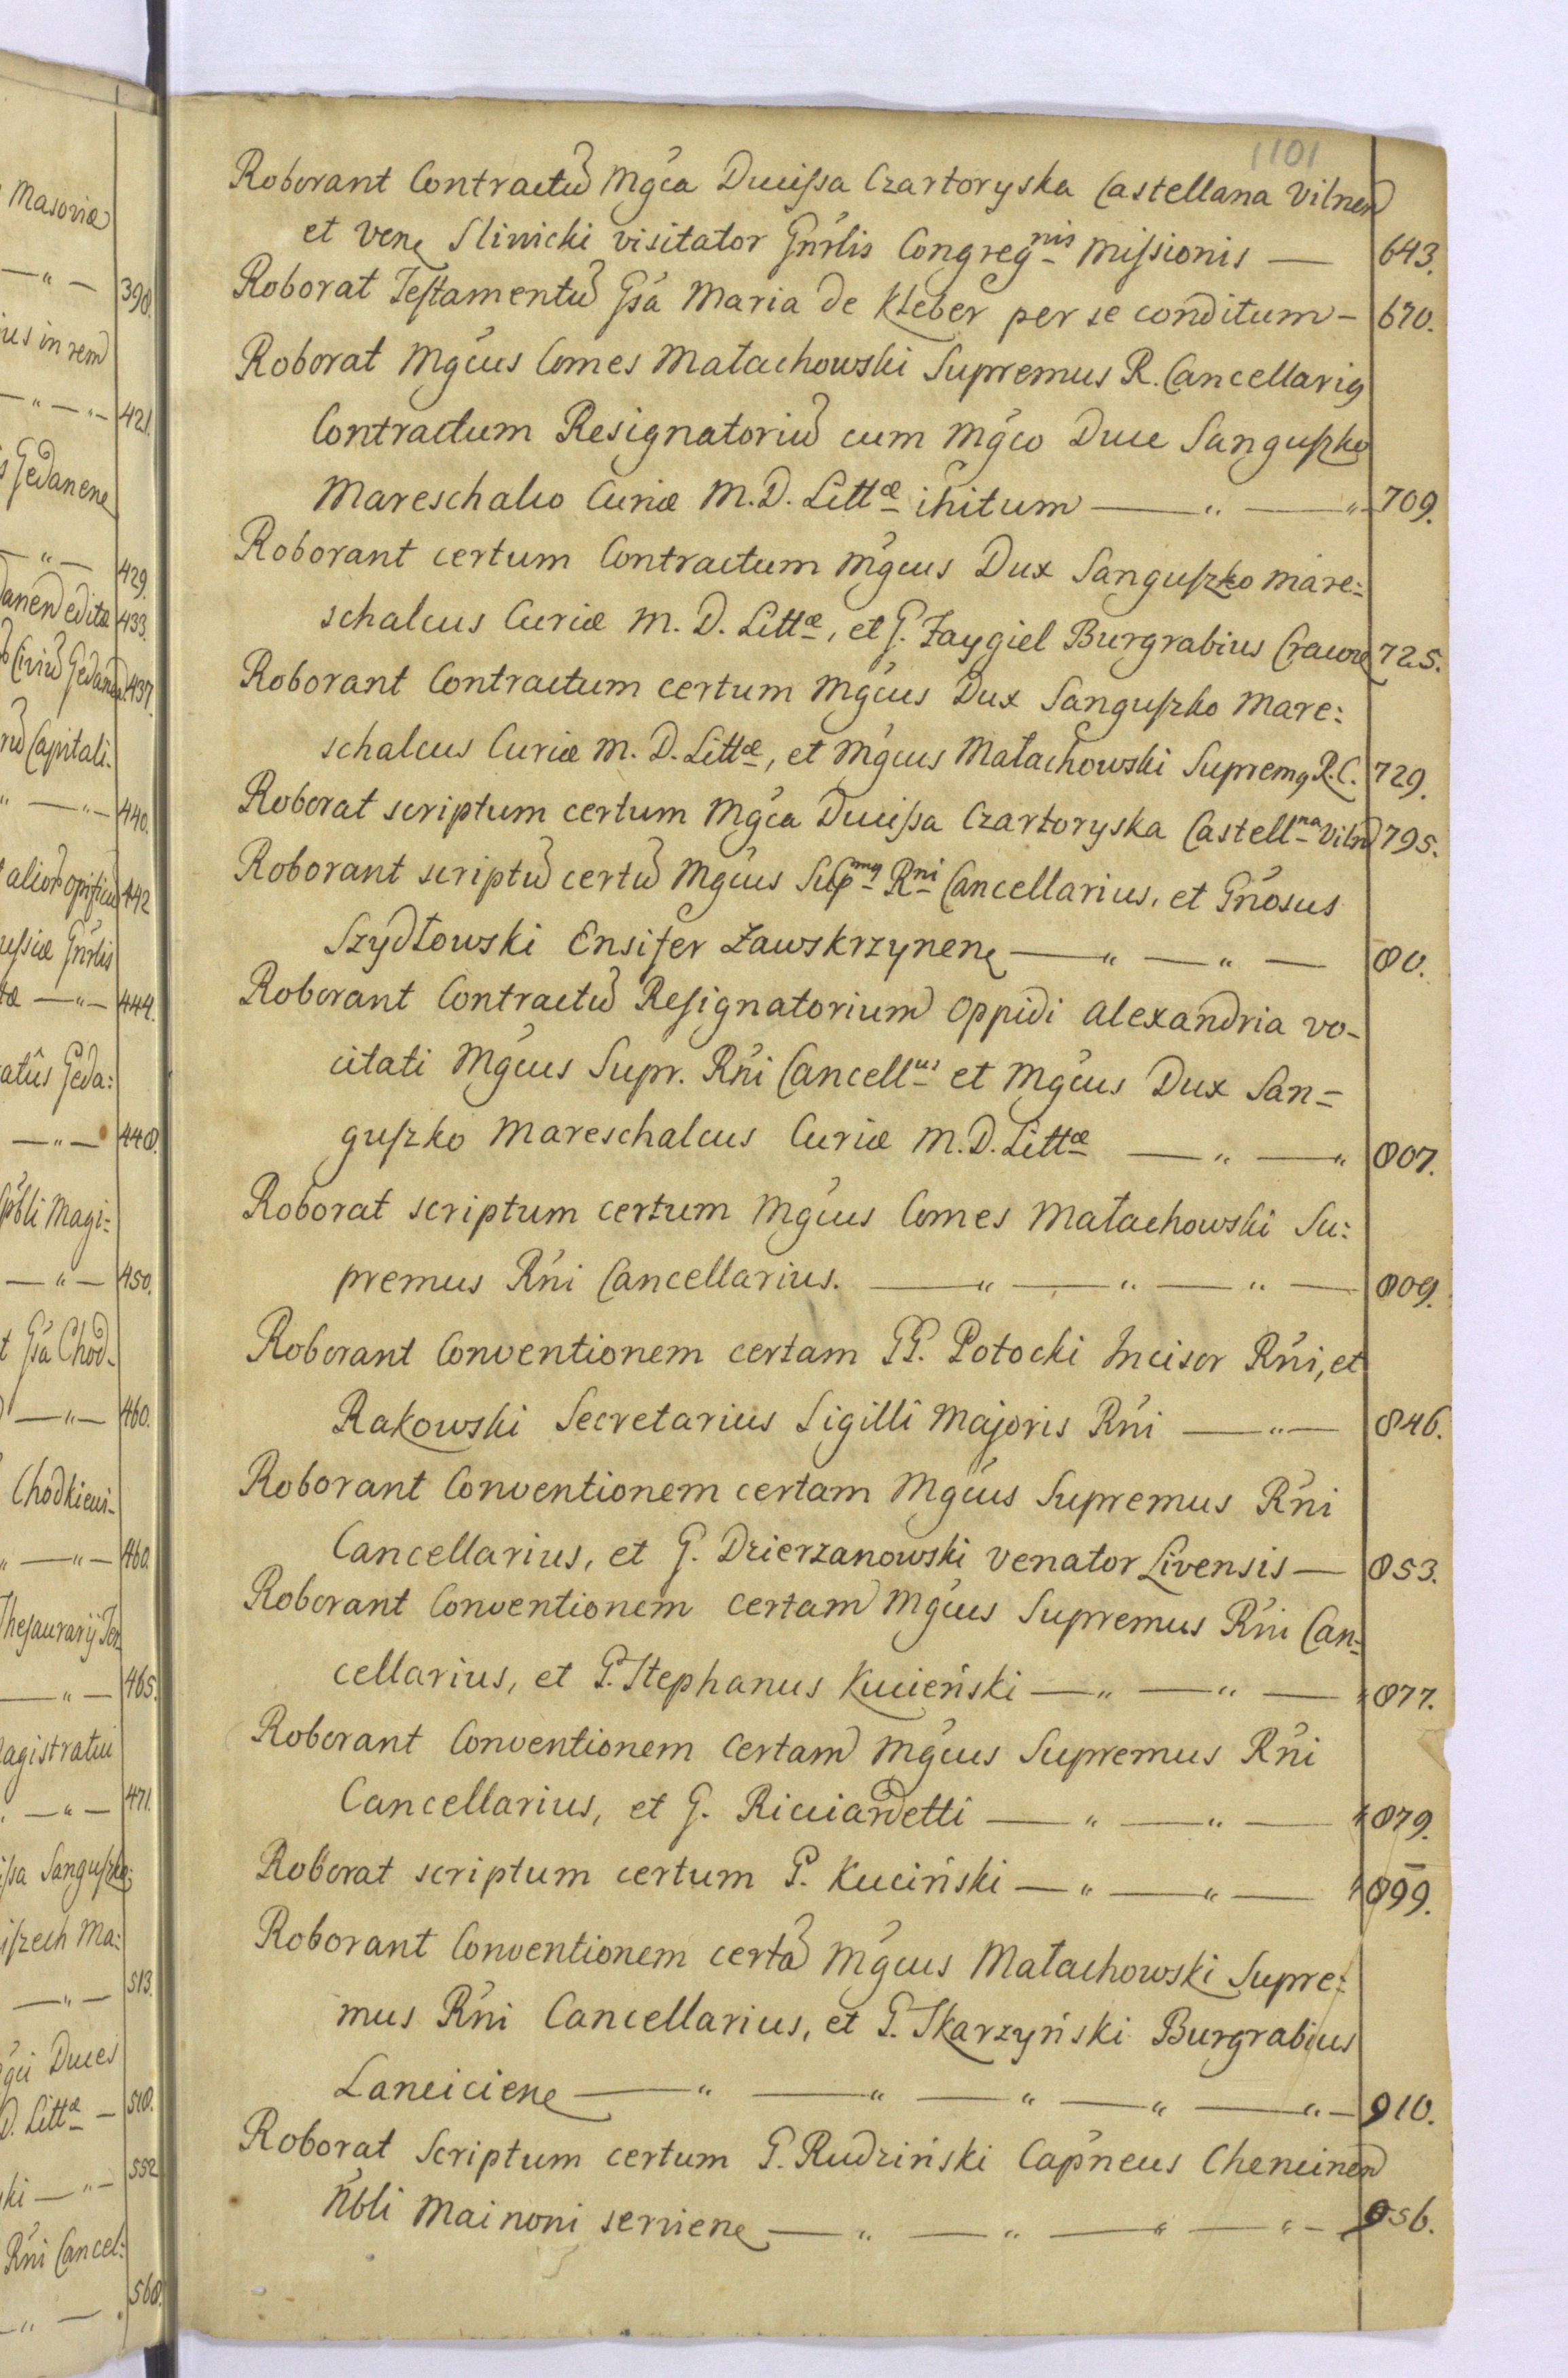 Masoviæ
— " — 390.
ius in rem
— " — " — 421.
s Gedanens
— " — 429.
danen edita 433.
Civiū Gedanen. 437.
rū Capitali.
" — " — 440.
alior opificū 442
ussiæ Gnrlis
tæ — " — 444.
atûs Geda:
— " — 448.
Spbli Magi:
— " — 450.
t Gsa Chod.
— " — 460.
Chodkiewi-
" — " — 460.
Thesaurarij Ter
— " — 465.
agistratui
— " — 471.
issa Sanguszko
iszech Ma:
— " — 513.
gci Duces
D. Littæ — 518.
ski — " — 552
Rni Cancel:
— " — 568.
1101
Roborant Contractū Mgca Ducissa Czartoryska Castellana Vilnen
et Vene Sliwicki visitator Gnrlis Congregnis Missionis — 643.
Roborat Testamentū Gsa Maria de Kleber per se conditum — 670.
Roborat Mgcus Comes Małachowski Supremus R. Cancellarig
Contractum Resignatoriū cum Mgco Duce Sanguszko
Mareschalco Curiæ M. D. Littæ initum — " — " — 709.
Roborant certum Contractum Mgcus Dux Sanguszko Mare:
schalcus Curiæ M. D. Littæ, et G. Zaygiel Burgrabius Cracove 725.
Roborant Contractum certum Mgcus Dux Sanguszko Mare:
schalcus Curiæ M. D. Littæ, et Mgcus Małachowski Supremg R. C. 729.
Roborat scriptum certum Mgca Ducissa Czartoryska Castellna Viln 795.
Roborant scriptū certū Mgcus Supmg Rni Cancellarius, et Gnosus
Szydłowski Ensifer Zawskrzynene — " — " — 80.
Roborant Contractū Resignatorium Oppidi Alexandria vo-
citati Mgcus Supr. Rni Cancellus et Mgcus Dux San=
guszko Mareschalcus Curiæ M. D. Littæ — " — " 807.
Roborat scriptum certum Mgcus Comes Małachowski Su:
premus Rni Cancellarius. — " — " — " — 809.
Roborant Conventionem certam GG. Potocki Incisor Rni, et
Rakowski Secretarius Sigilli Majoris Rni — " — 846.
Roborant Conventionem certam Mgcus Supremus Rni
Cancellarius, et G. Dzierzanowski Venator Livensis — 853.
Roborant Conventionem certam Mgcus Supremus Rni Can=
cellarius, et G. Stephanus Kucieński — " — " — " 877.
Roborant Conventionem certam Mgcus Supremus Rni
Cancellarius, et G. Ricciardetti — " — " — " 879.
Roborat scriptum certum G. Kuciński — " — " — " 899.
Roborant Conventionem certā Mgcus Małachowski Supre:
mus Rni Cancellarius, et G. Skarzyński Burgrabius
Lanciciene — " — " — " — " — " — 910.
Roborat Scriptum certum G. Rudziński Capneus Chencinen
Nbli Mainoni serviene — " — " — " — " — 956.